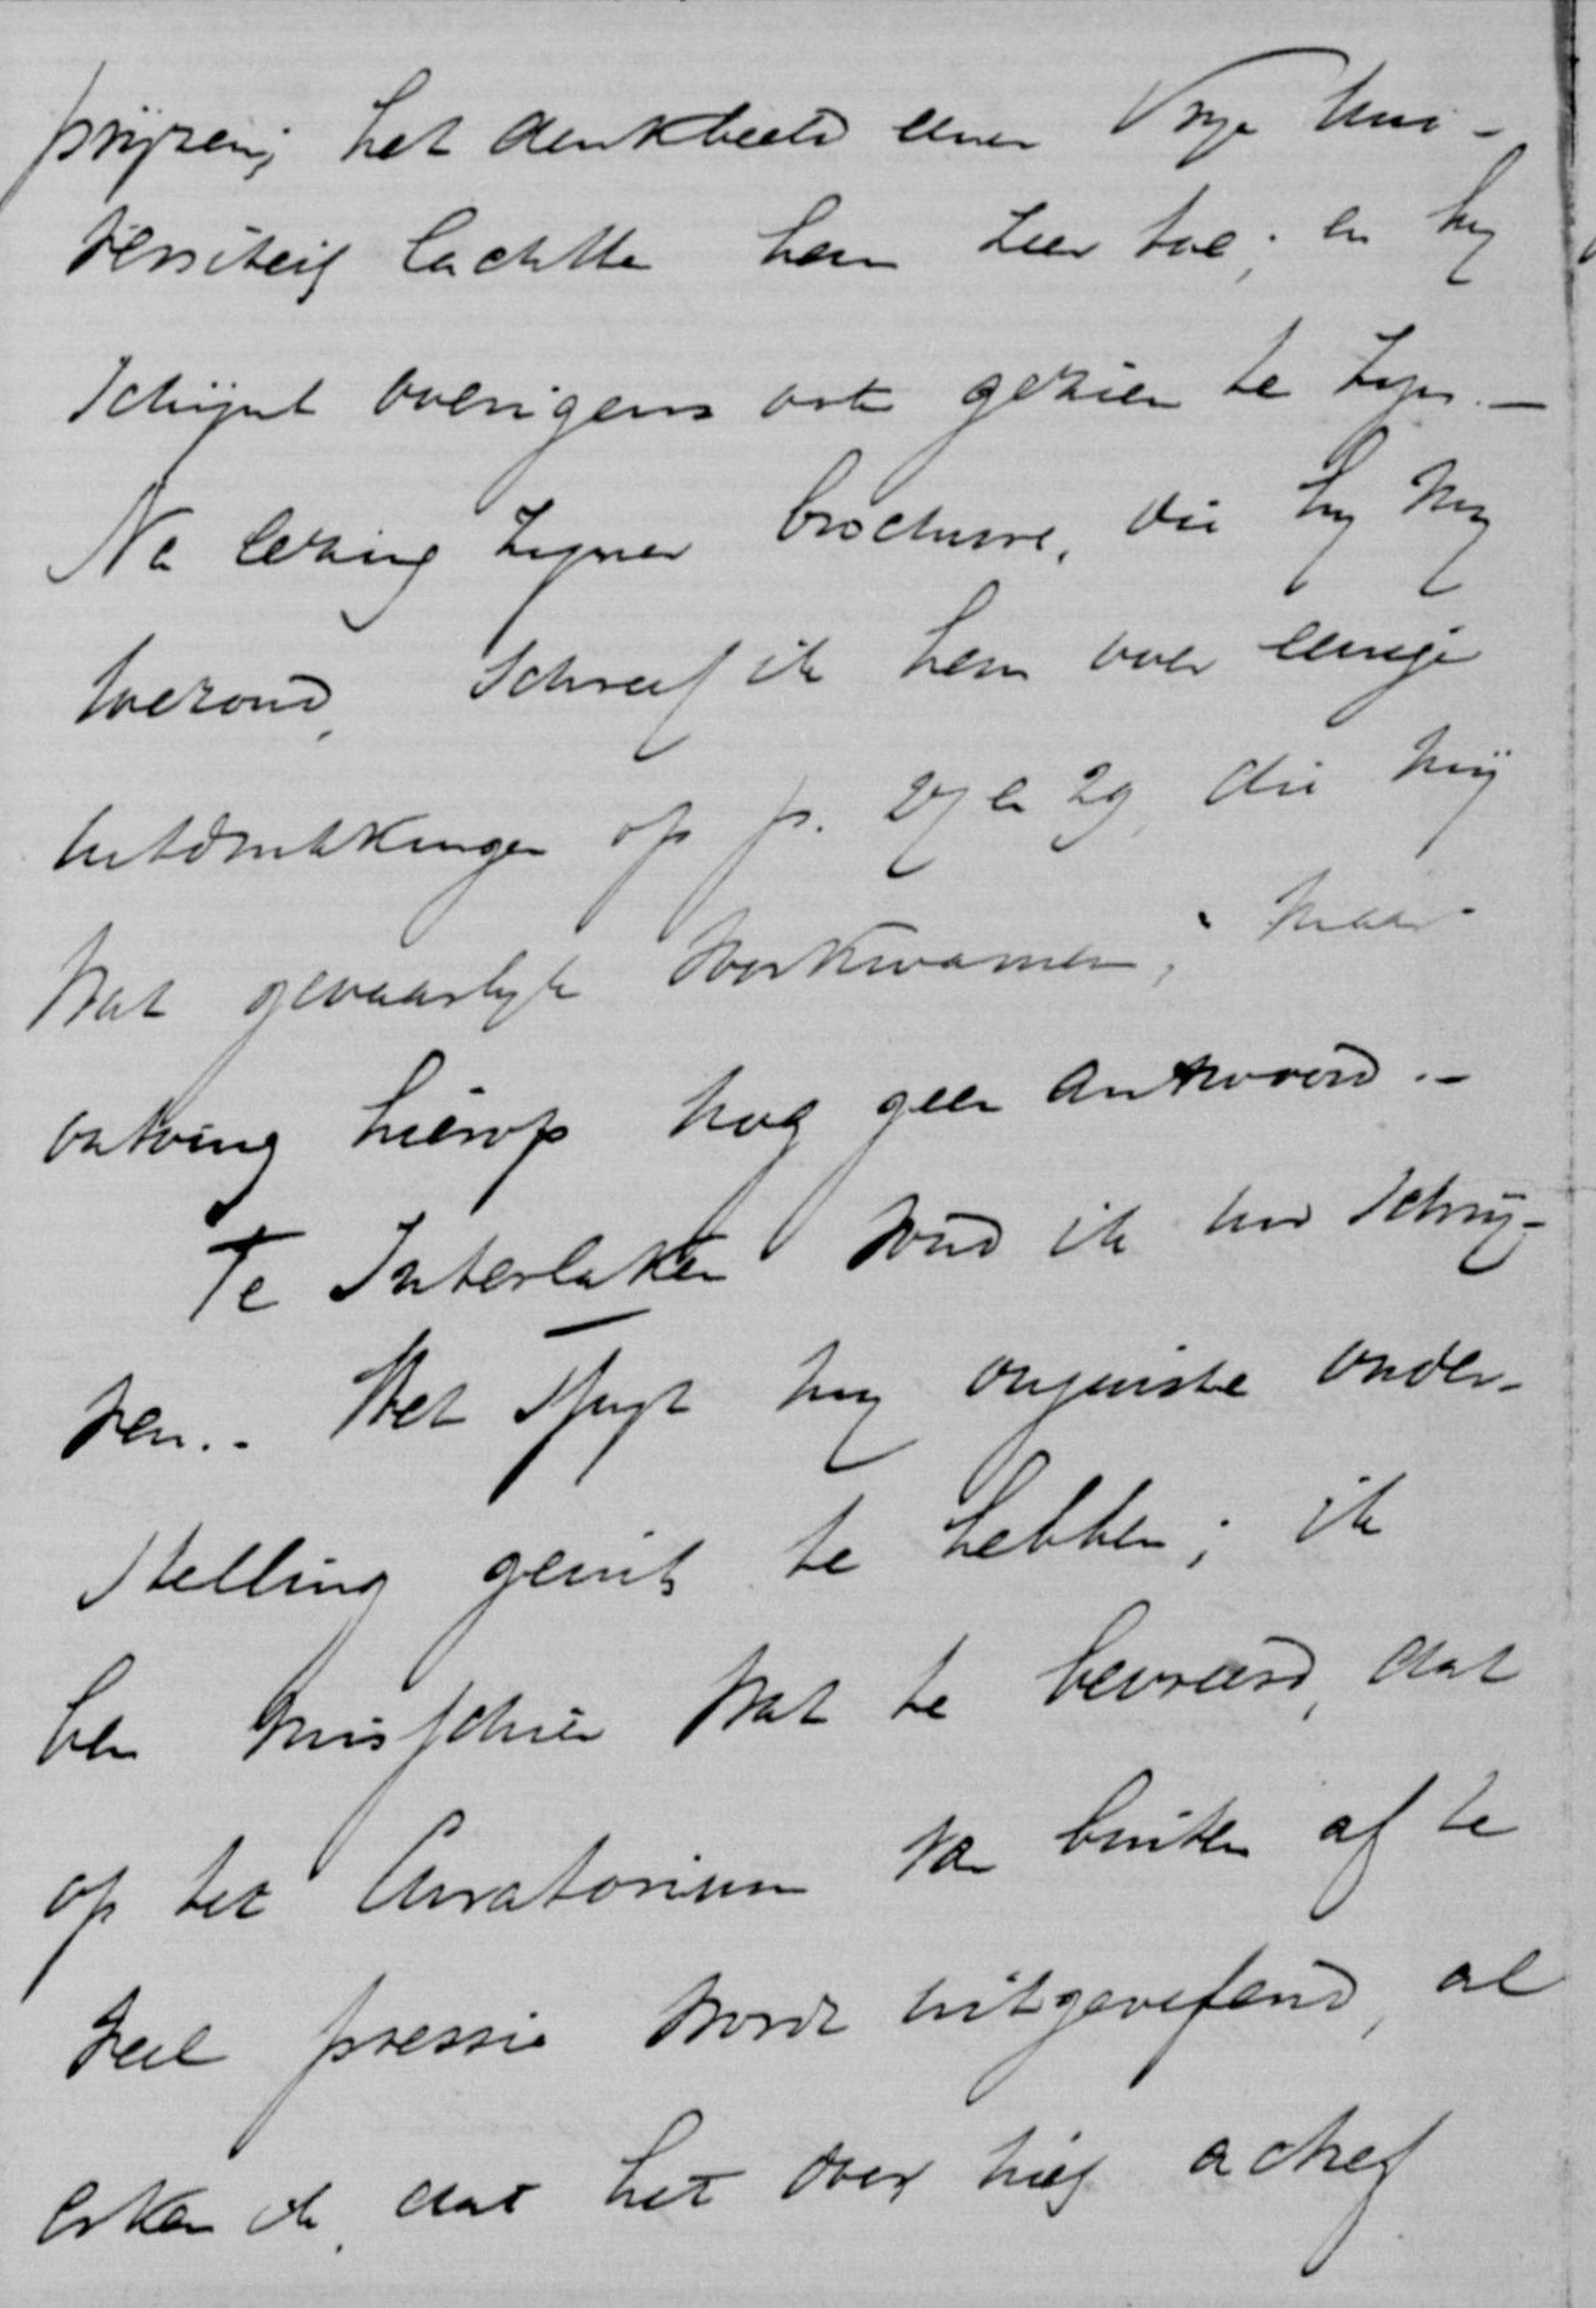 prijzen; het denkbeeld eener Vrije Uni-
versiteit lachtte hem zeer toe; en hij
schijnt overigens ook gezien te zijn. —
Na lezing zijner brochure, die hij mij
toezond, schreef ik hem over eenige
uitdrukkingen op p. 27 en 29, die mij
wat gevaarlijk voorkwamen; maar
ontving hierop nog geen antwoord. –
Te Interlaken vond ik uw schrij-
ven. – Het spijt mij onjuiste onder-
stelling geuit te hebben; ik
ben misschien wat te bevreesd, dat
op het Curatorium van buiten af te
veel pressie wordt uitgeoefend, al
erken ik, dat het over hief